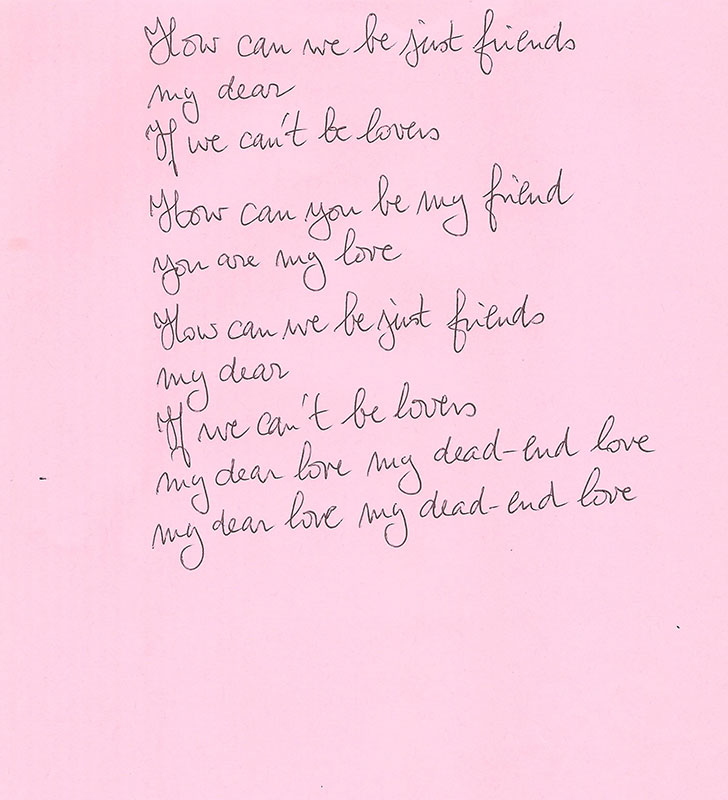 How can we be just friends
my dear
If we can't be lovers
How can you be my friend
you are my love
How can we be just friends
my dear
If we can't be lovers
my dear love my dead-end love
my dear love my dead-end love